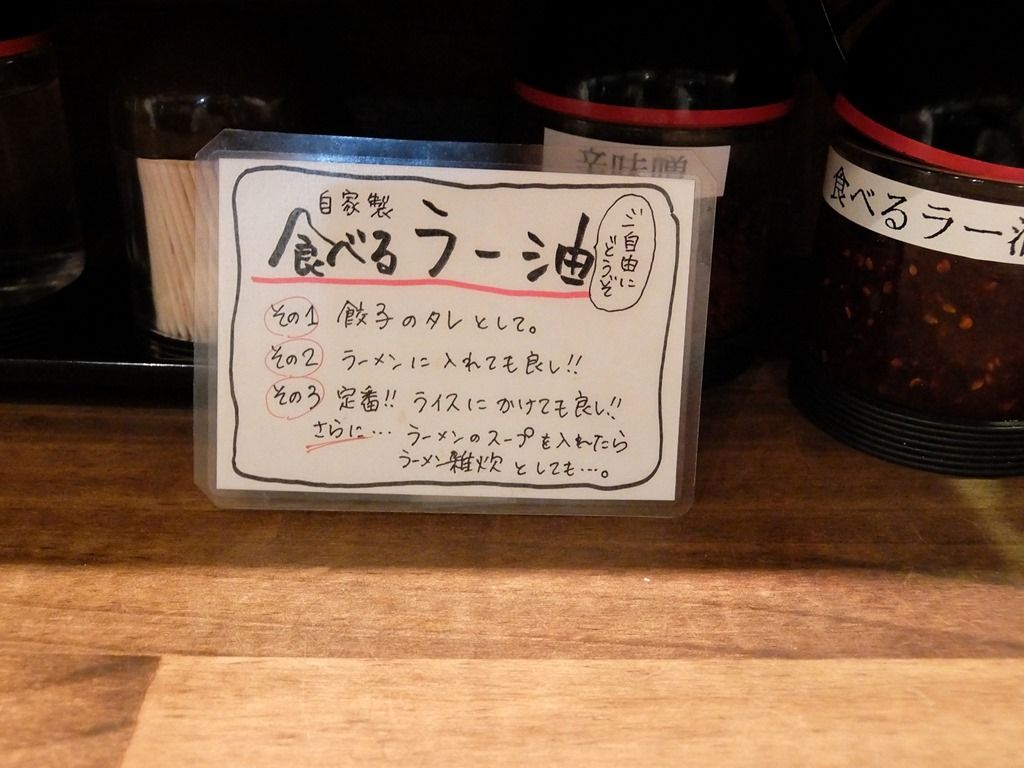 自家製
食べるラー油
ご自由に
どうぞ
その1 餃子のタレとして。
その2 ラーメンに入れても良し!!
その3 定番!! ライスにかけても良し!!
さらに… ラーメンのスープを入れたら
ラーメン雑炊としても…。
辛味噌
食べるラー油